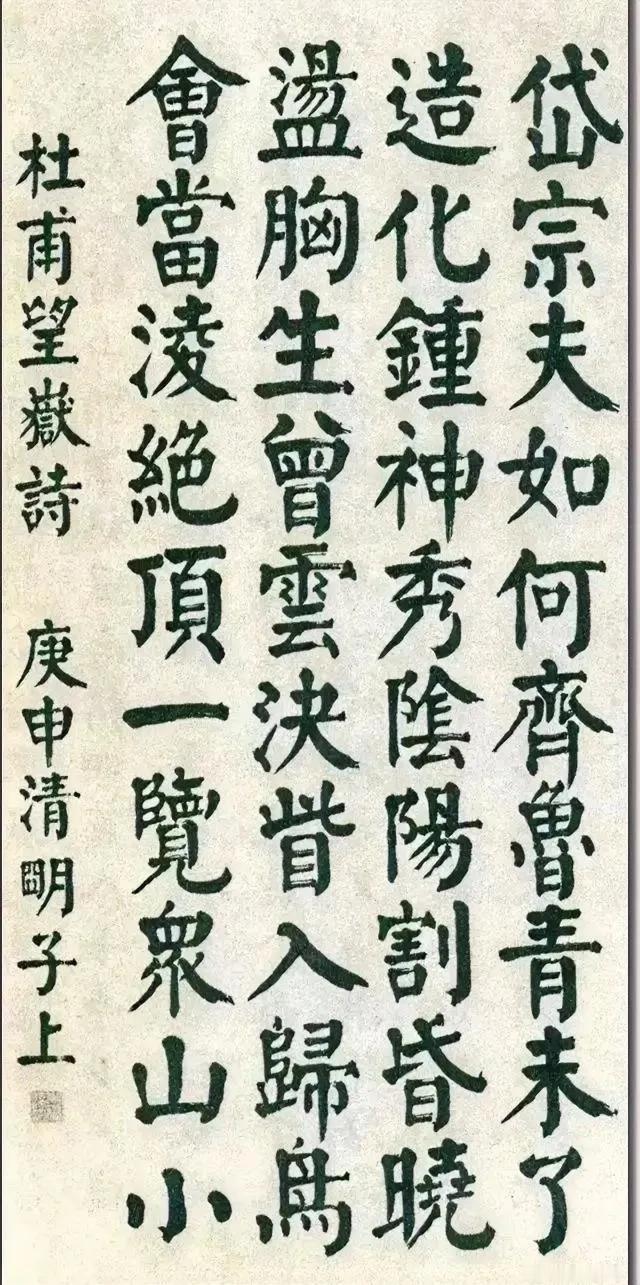 岱宗夫如何齊魯青未了
造化鍾神秀陰陽割昏曉
盪胸生曾雲決眥入歸鳥
會當淩絶頂一覽眾山小
杜甫望嶽詩 庚申清朙子上